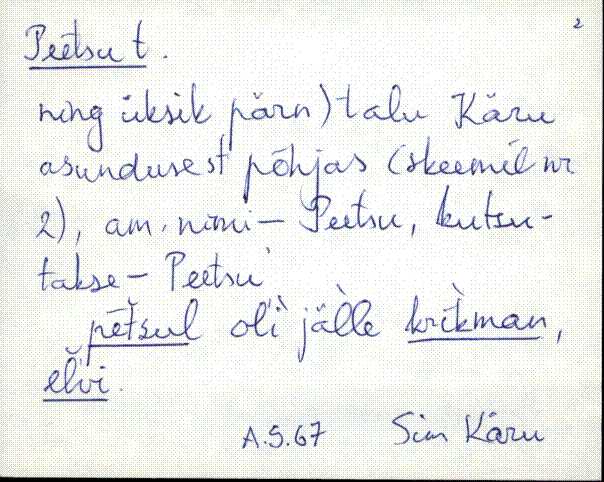 2
Peetsu t.
ning üksik pärn) talu Käru
asundusest põhjas (skeemil nr
2), am. nimi – Peetsu, kutsu-
takse – Peetsu'
pētsul oli jälle krikman,
elvi.
A.S. 67 Sim Käru